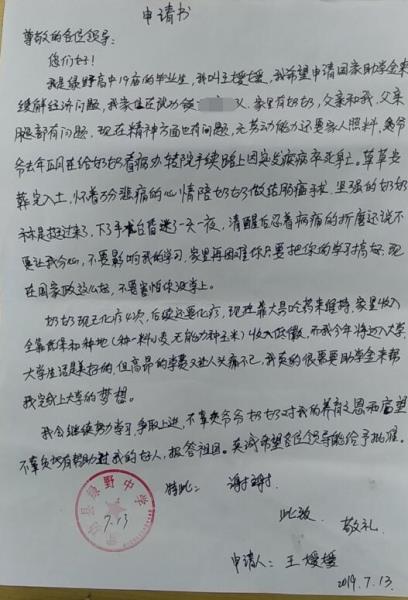 申请书
尊敬的各位领导:
您们好!
我是绿野高中19届的毕业生,我叫王嫒嫒,我希望申请国家助学金来
缓解经济问题,我家住 家里有奶奶,父亲和我,父亲
腿部有问题,现在精神方面也有问题,无劳动能力还要家人照料,爷
爷去年正月在给奶奶看病办转院手续路上因突发疾病率死亡。草草安
葬完入土,怀着万分悲痛的心情陪奶奶做结肠癌手术,坚强的奶奶
挺过来了,下了手术台昏迷了一天一夜,清醒后忍着病痛的折磨还说不
要让我分心,不要影响我的学习,家里再困难你只要把你的学习搞好,现
在国家政这么好,不要害怕你没学上。
奶奶现已化疗4次,后续还要化疗,现在靠大量吃药来维持,家里收入
全靠低保和种地(种一料小麦无能力种玉米)收入低微,而我今年将迈入大学,
大学生活是美好的,但高昂的学费又让人头痛不已,我真的很需要助学金来帮
我完成上大学的梦想。
我会继续努力学习,争取上进,不辜负爷爷奶奶对我的养育之恩和愿望
不辜负所有帮助过我的好人,报答祖国。真诚希望各位领导能给予批准。
特此: 谢谢
此致
敬礼
县绿野中学
7.13
申请人:王嫒嫒
2019.7.13.